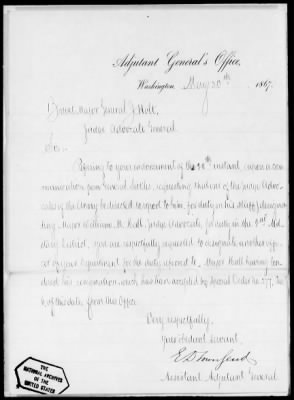 Adjutant General's Office,
Washington May 30th 1867.
Brevet Major General J. Holt,
Judge Advocate General.
Sir:
Referring to your endorsement of the instant, upon a com-
munication from General Sickles, requesting that one of the Judge Advo-
cates of the Army be directed to report to him, for duty on his staff, designa-
ting Major William M. Hall, Judge Advocate, for duty in the 2nd Mil-
itary District, you are respectfully requested to designate another offi-
cer of your Department for the duty referred to. Major Hall having ten-
dered his resignation which has been accepted by Special Orders No. 277, Par.
of this date, from this Office.
Very respectfully,
Your obedient servant,
E D Townsend
Assistant Adjutant General.
THE
NATIONAL ARCHIVES
OF THE
UNITED STATES